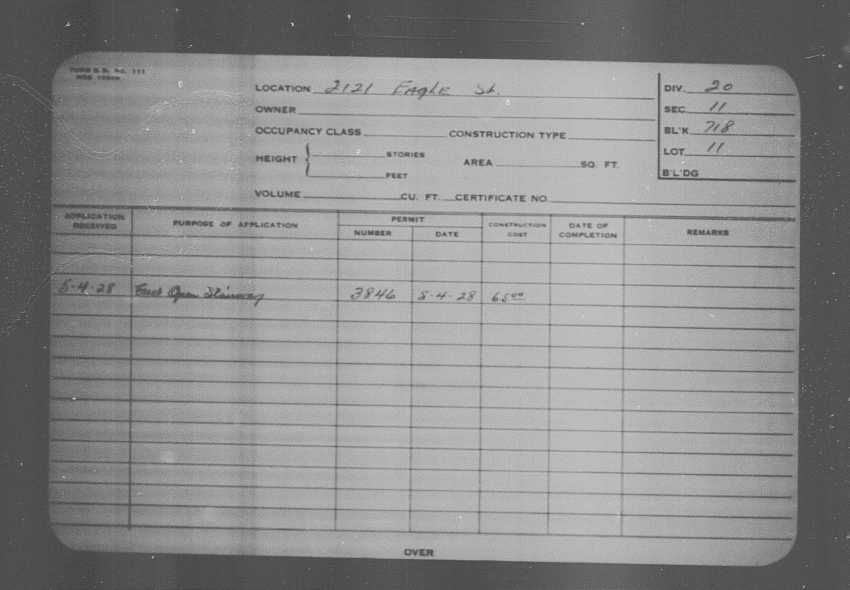 FORM B.B. No. 111
LOCATION 2121 EAGLE St.
DIV. 20
OWNER
SEC. 11
OCCUPANCY CLASS CONSTRUCTION TYPE
BL'K 718
HEIGHT { STORIES AREA SQ. FT.
LOT 11
FEET
B'L'DG
VOLUME CU. FT. CERTIFICATE NO.
APPLICATION RECEIVED PURPOSE OF APPLICATION PERMIT NUMBER DATE CONSTRUCTION COST DATE OF COMPLETION REMARKS
5-4-28 Erect Open Stairway 3846 5-4-28 65 00
OVER